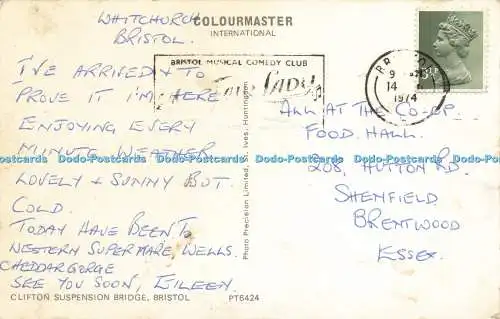 WHITCHURCH
BRISTOL.
I'VE ARRIVED & TO
PROVE IT I'M HERE
ENJOYING EVERY
MINUTE WEATHER
LOVELY & SUNNY BUT
COLD.
TODAY HAVE BEEN TO
WESTERN SUPER MARE, WELLS.
CHEDDAR GORGE
SEE YOU SOON, EILEEN.
CLIFTON SUSPENSION BRIDGE, BRISTOL PT6424
COLOURMASTER
INTERNATIONAL
BRISTOL MUSICAL COMEDY CLUB
Fair Lady
Photo Precision Limited, St. Ives, Huntingdon
BRISTOL
9
14
1974
ALL AT THE CO-OP
FOOD HALL.
208, HUTTON RD.
SHENFIELD
BRENTWOOD
ESSEX.
Dodo-Postcards Dodo-Postcards Dodo-Postcards Dodo-Postcards Dodo-Postcards